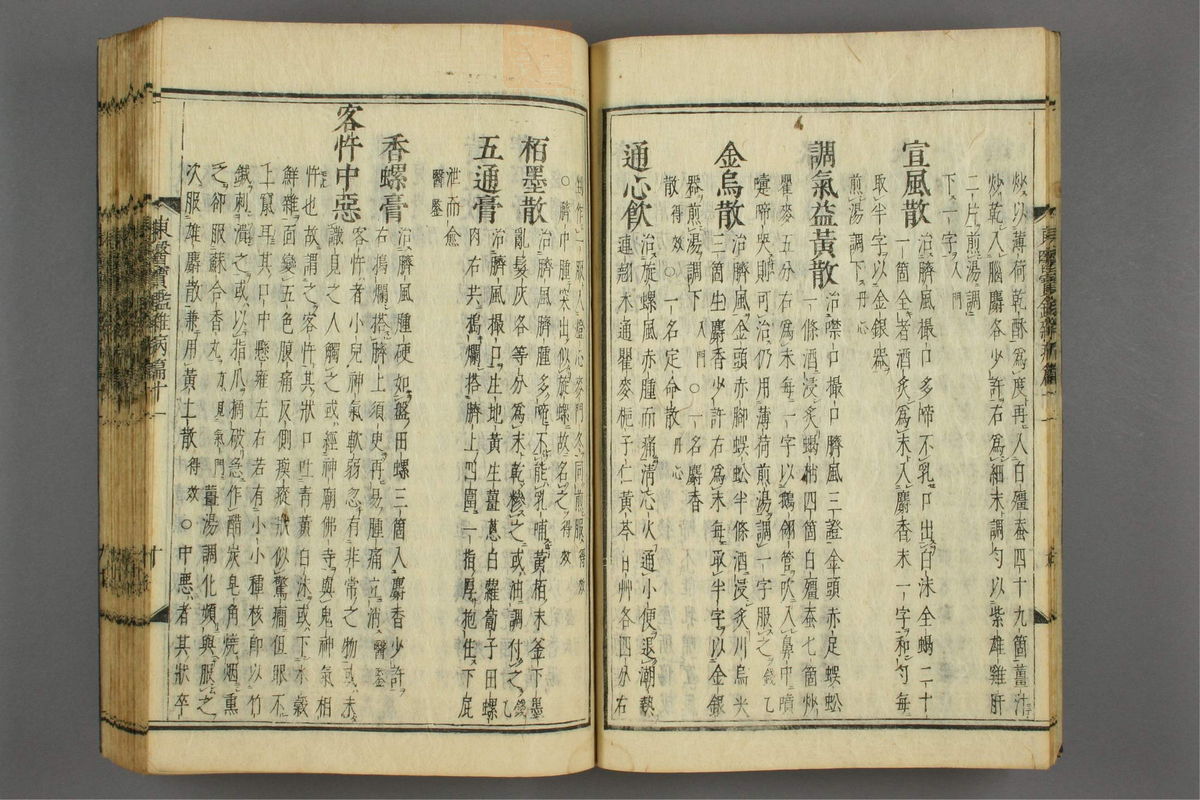 炒以薄荷乾酥爲度再入白殭蚕四十九箇薑汁
炒乾入腦麝各少許右爲細末調勻以紫雄雞肝
二片煎湯調
下一字入門
宣風散 治臍風撮口多啼不乳口出白沫全蝎二十
一箇全者酒炙爲末入麝香末一字和勻每
取半字以金銀器
煎湯調下丹心
調氣益黃散 治噤口撮口臍風三證金頭赤足蜈蚣
一條酒浸炙蝎梢四箇白殭蚕七箇炒
瞿麥五分右爲末每一字以鵝翎管吹入鼻中噴
嚏啼哭則可治仍用薄荷煎湯調一字服之錢乙
金烏散 治臍風金頭赤脚蜈蚣半條酒浸炙川烏尖
三箇生麝香少許右爲末每取半字以金銀
器煎湯調下入門○一名麝香
散得效○一名定命散丹心
通心飲 治旋螺風赤腫而痛清心火通小便退潮熱
連翹木通瞿麥梔子仁黃芩甘艸各四分右
作一服入燈心麥門冬同煎服得效
○臍中腫突出似旋螺故名之得效
栢墨散 治臍風臍腫多啼不能乳哺黃栢末釜下墨
亂髮灰各等分爲末乾摻之或油調付之錢乙
五通膏 治臍風撮口生地黃生薑葱白蘿葍子田螺
肉右共搗爛搭臍上四圍一指厚抱住下屁
泄而愈
醫鑒
香螺膏 治臍風腫硬如盤田螺三箇入麝香少許
右搗爛搭臍上須臾再易腫痛立消醫鑒
客忤中惡 客忤者小兒神氣軟弱忽有非常之物或未
識見之人觸之或經神廟佛寺與鬼神氣相
忤也故謂之客忤其狀口吐青黃白沫或下水穀
鮮雜面變五色腹痛反側瘈瘲狀似驚癎但眼不
上竄耳其口中懸雍左右若有小小種核卽以竹
鍼刺潰之或以指爪搯破急作醋炭皂角燒烟熏
之却服蘇合香丸方見氣門薑湯調化頻與服之
次服雄麝散兼用黃土散得效○中惡者其狀卒
東醫寶鑑雜病篇十一